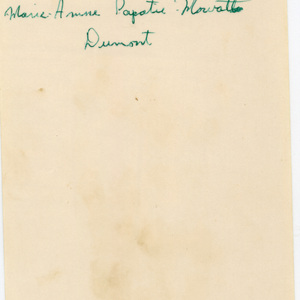 Marie-Amne Papatie Mowatt
Dumont